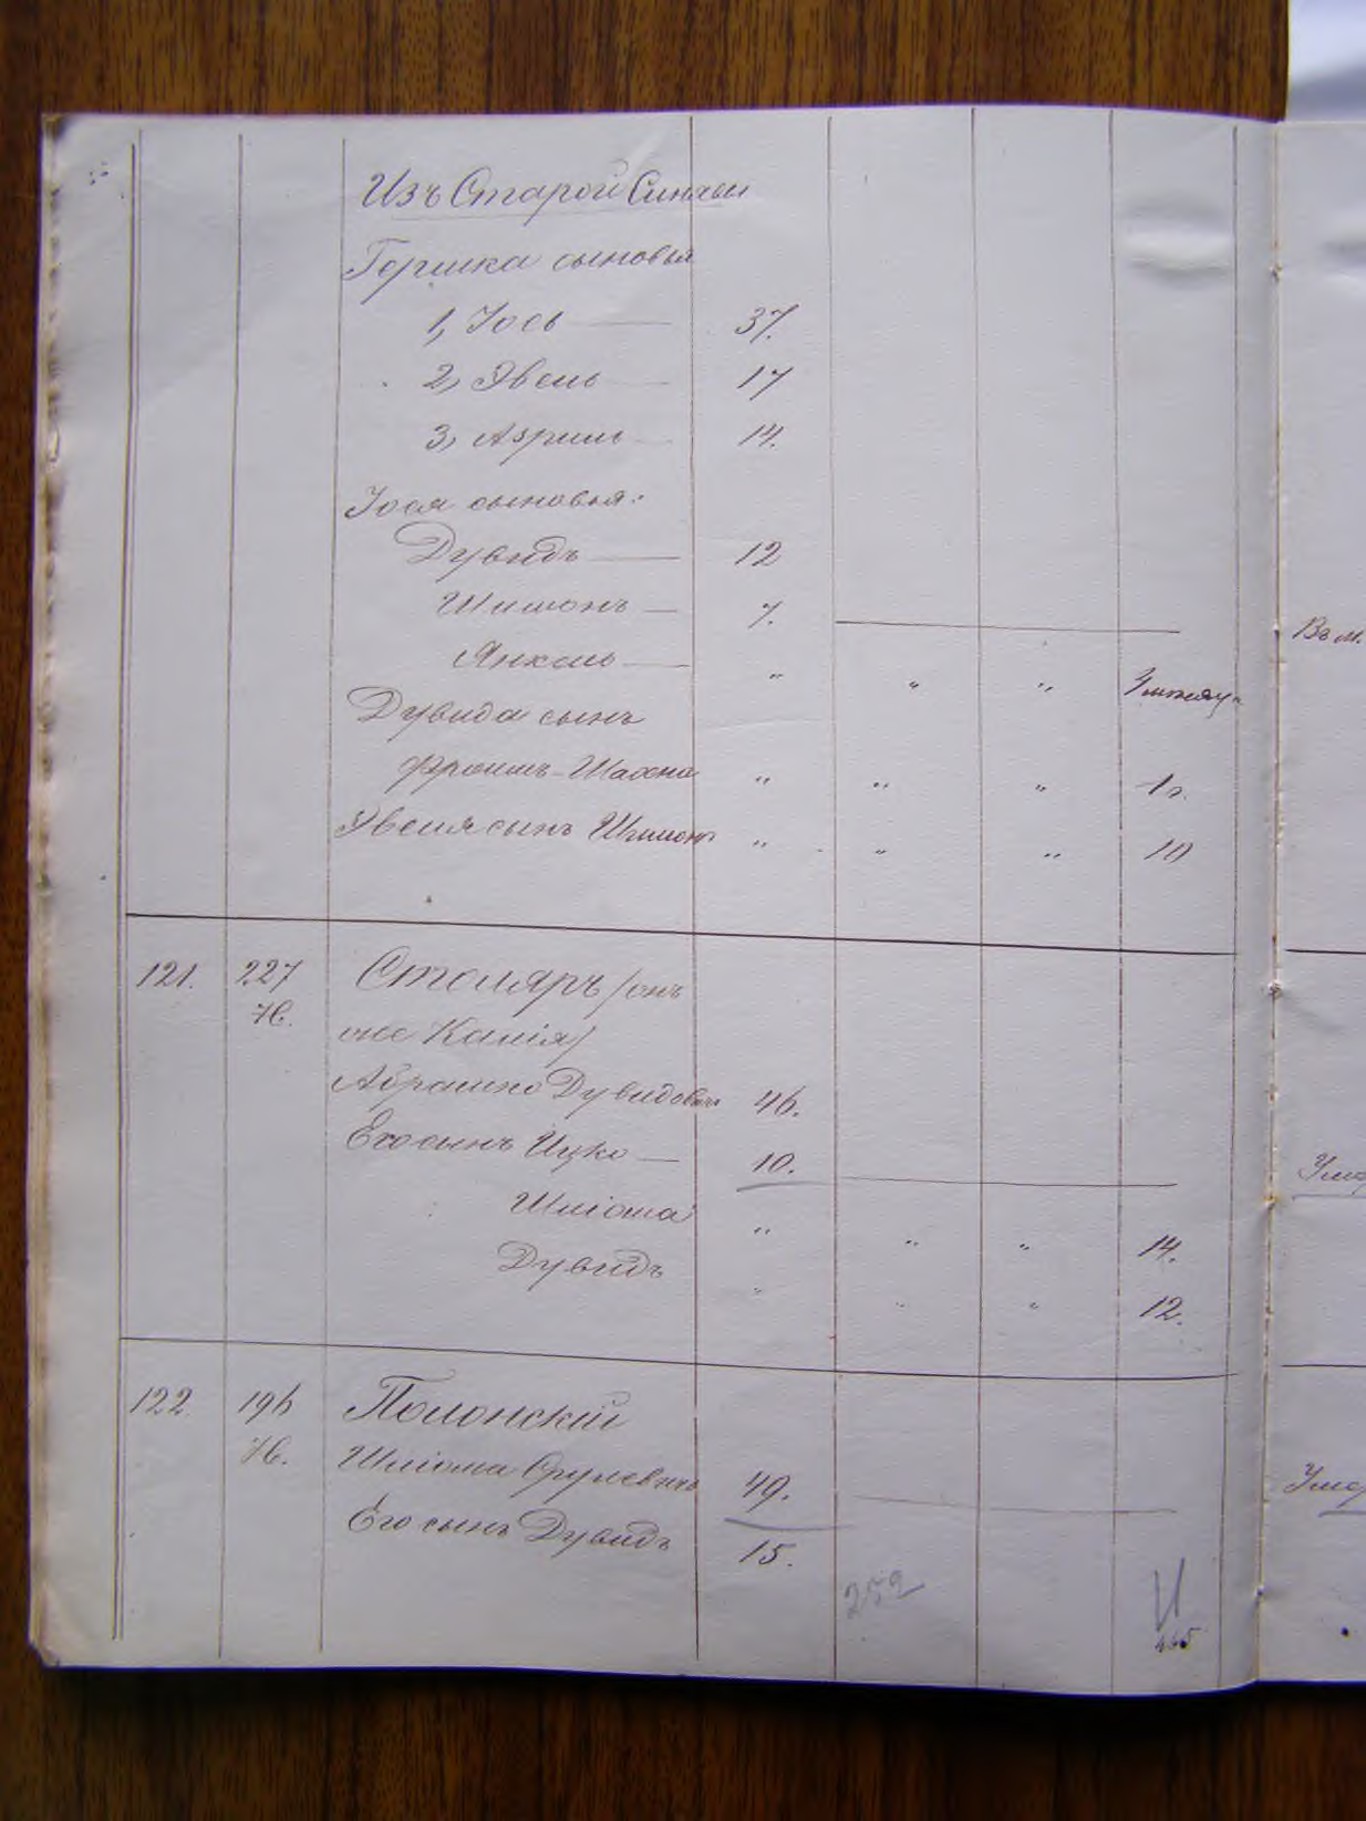 Изъ Старой Синявы
Гершка сыновья
1, Іось — 37.
2, Явель — 17
3, Азриль — 14.
Іося сыновья:
Дувидъ — 12
Шимонъ — 7.
Въ м.
Янкель — " " "
Дувида сынъ
Фроимъ-Шахна " " " 1 г.
Явеля сынъ Шимонъ " " " 10
121. 227 Столяръ /онъ
76. же Капія/
Абрашко Дувидовичъ 46.
Его сынъ Ицко — 10.
Шліома " " " 14.
Дувидъ " " " 12.
122 196 Полонскій
76. Шліома Срулевичъ 49.
Его сынъ Дувидъ 15.
252
465